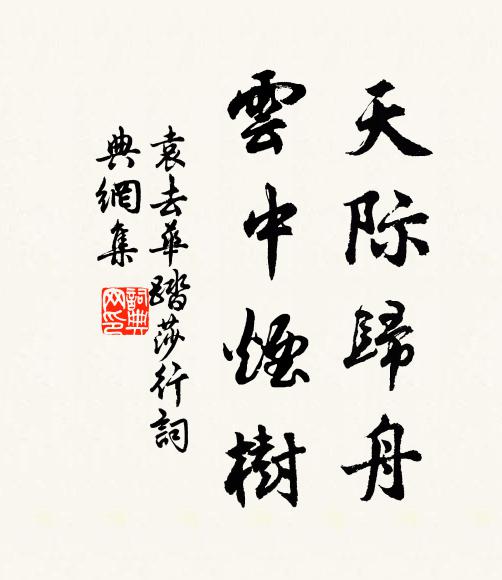 天际歸舟
雲中煙樹
袁去華踏莎行詞
典網集
詞典
网印